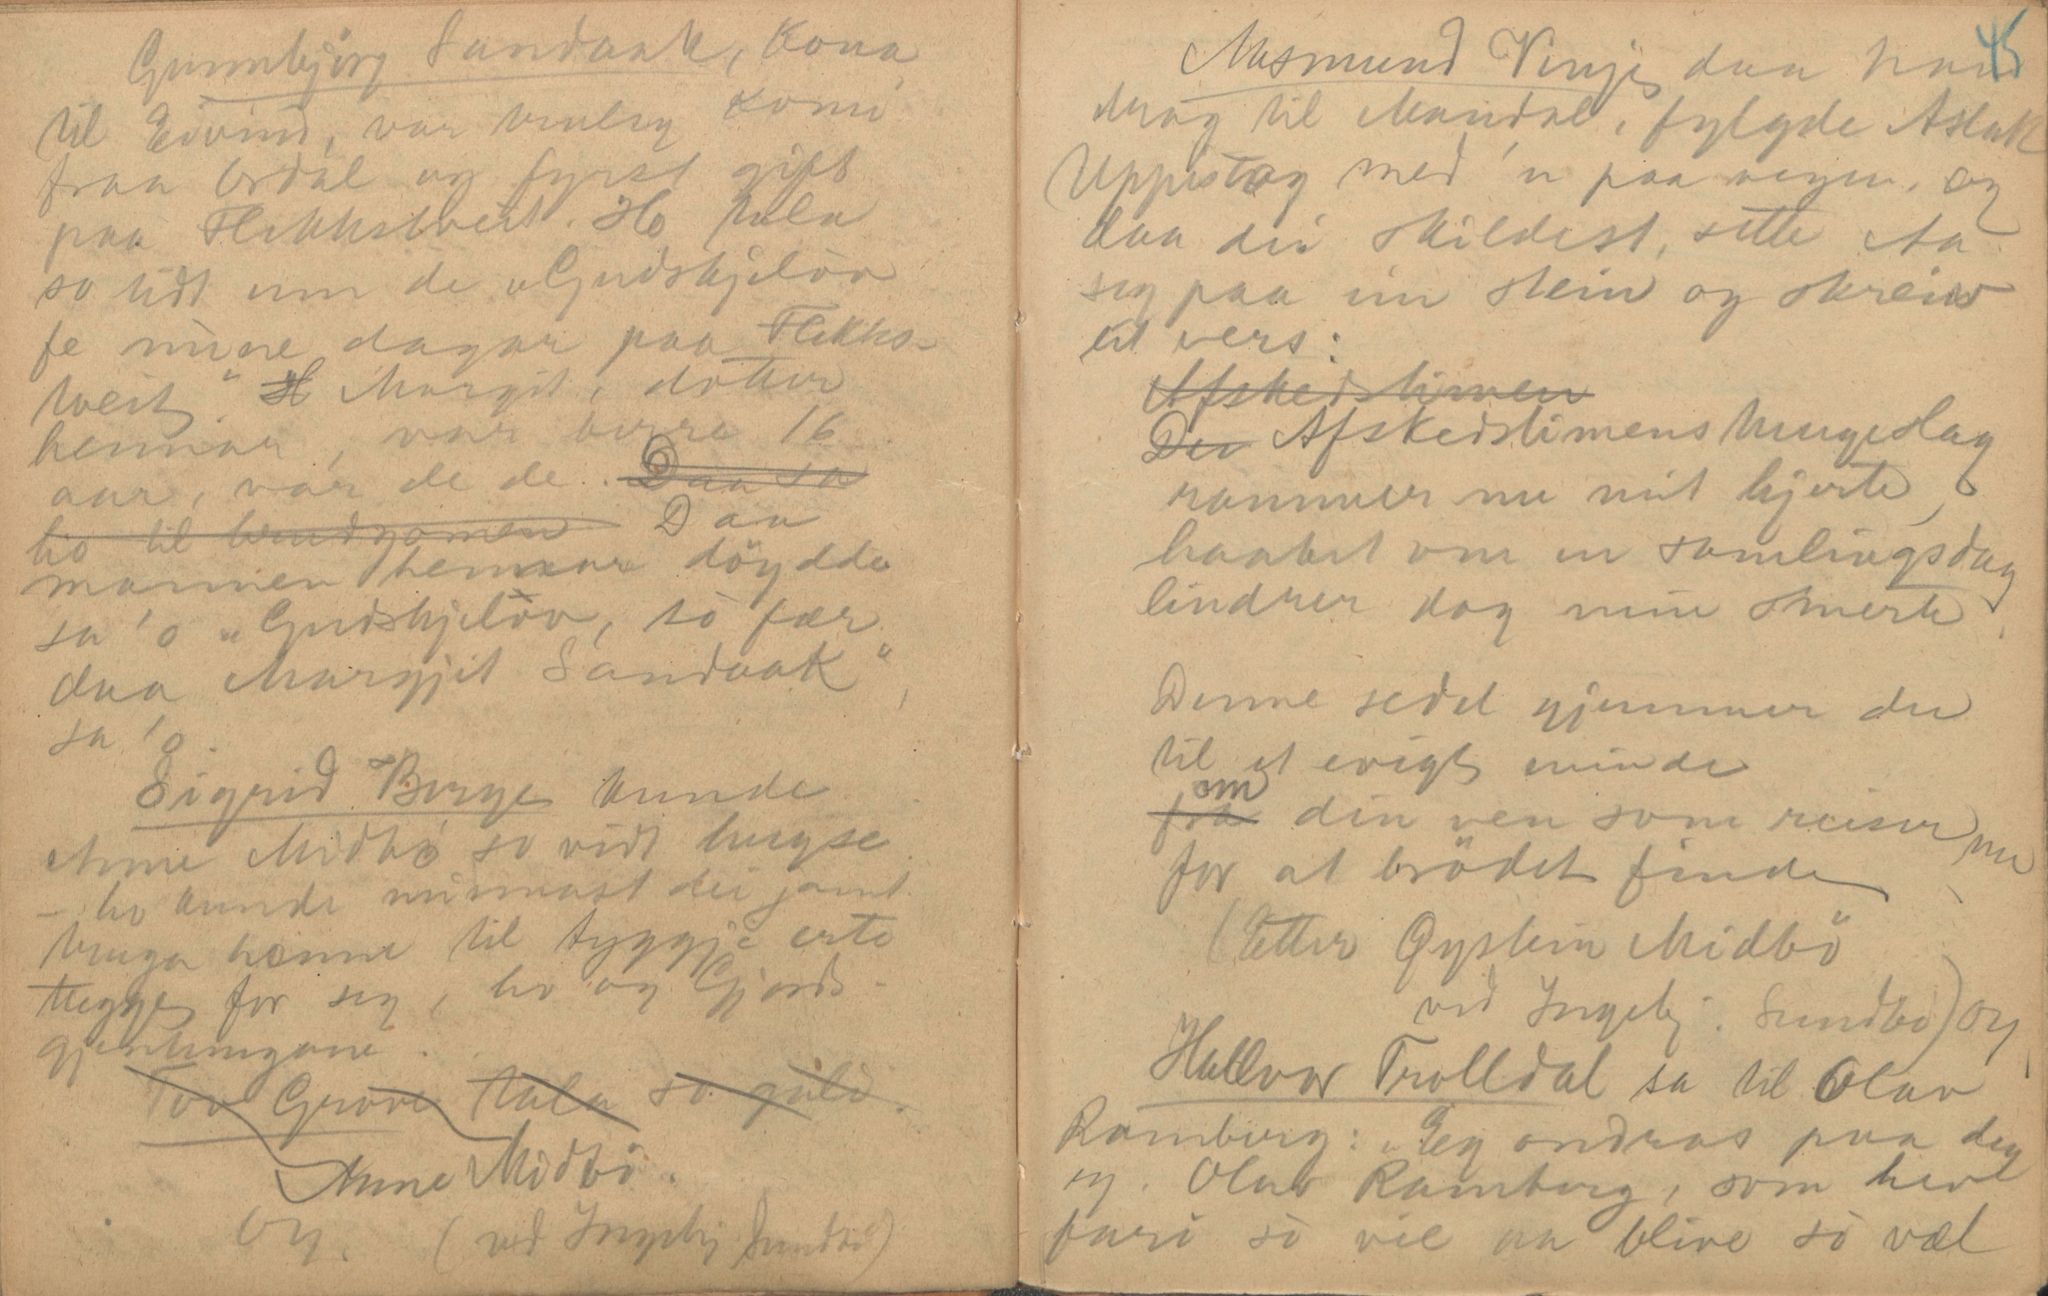 Gunnbjörg Sandaak, Kona
til Eivind, var truleg komi
fraa Ordal og fyrst gift
paa Flekkstveit. Ho tala
so tidt um de „Gudskjelöv
fe mine dagar paa Flekks-
tveit". H Margit, dotter
hennar, var berre 16
aar, var de de. Daa sa
ho til brudgomen Daa
mannen hennar döydde
sa 'o „Gudskjelöv, so fær
daa Margjit Sandaak",
sa 'o.
Sigrid Berge kunde
Anne Midbö so vidt hugse
- ho kunde minnast dei jamt
bruga henne til tyggje erte
tregge for seg, ho og Gjords-
gjentungane.
Tov Grove tala so gild.
Anne Midbö.
Oy. (ved Ingebj Sundbö)
45
Aasmund Vinje, daa han
drog til Mandal, fylgde Aslak
Uppistog med 'n paa vegen, og
daa dei skildest, sette Aa
seg paa ein stein og skreiv
eit vers:
Afskedstimen
Den Afskedstimens tunge slag
rammer nu mit hjerte,
haabet om en samlingsdag
lindrer dog min smerte.
Denne sedel gjemmer du
til et evigt minde
fra om din ven som reiser nu
for at brödet finde
(Etter Øystein Midbö
ved Ingebj. Sundbö) Oy
Hallvor Trolldal sa til Olav
Ramberg: „Eg ondras paa deg
eg, Olav Ramberg, som heve
fari so vel aa blive so væl